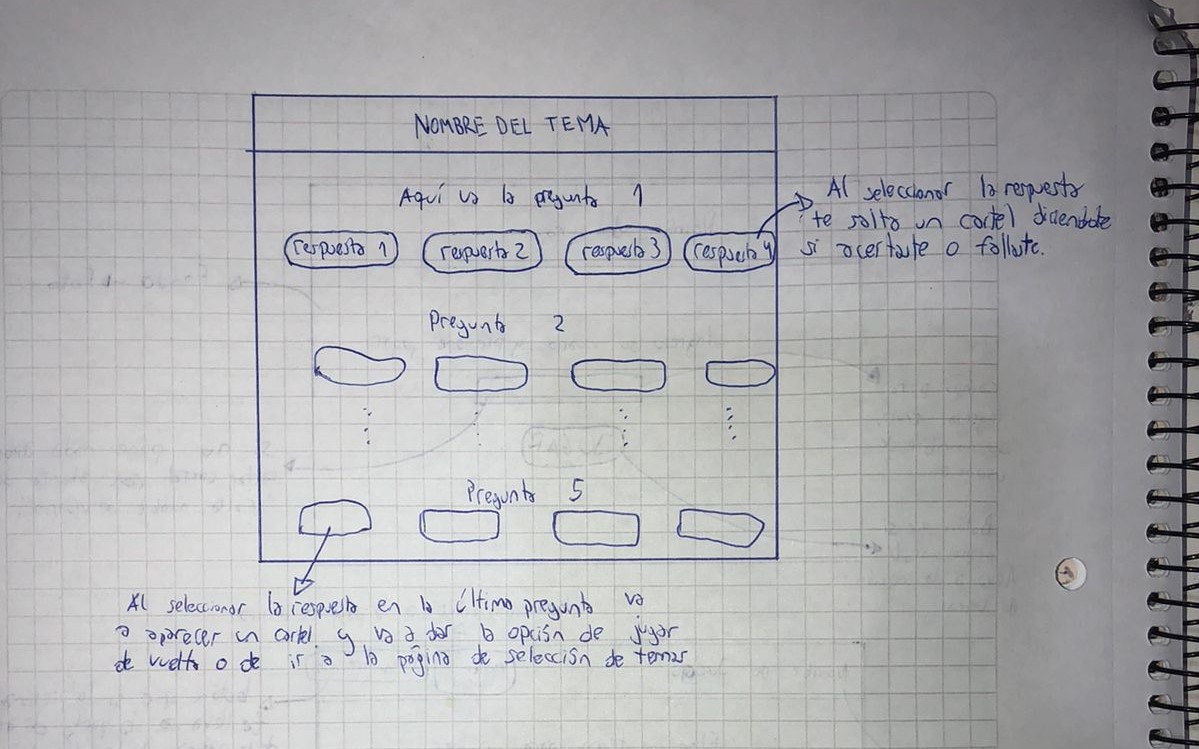 NOMBRE DEL TEMA
Aquí va la pregunta 1
respuesta 1 respuesta 2 respuesta 3 respuesta 4
Al seleccionar la respuesta
te salta un cartel diciendote
si acertaste o fallaste.
Pregunta 2
Pregunta 5
Al seleccionar la respuesta en la última pregunta va
a aparecer un cartel y va a dar la opción de jugar
de vuelta o de ir a la página de selección de temas